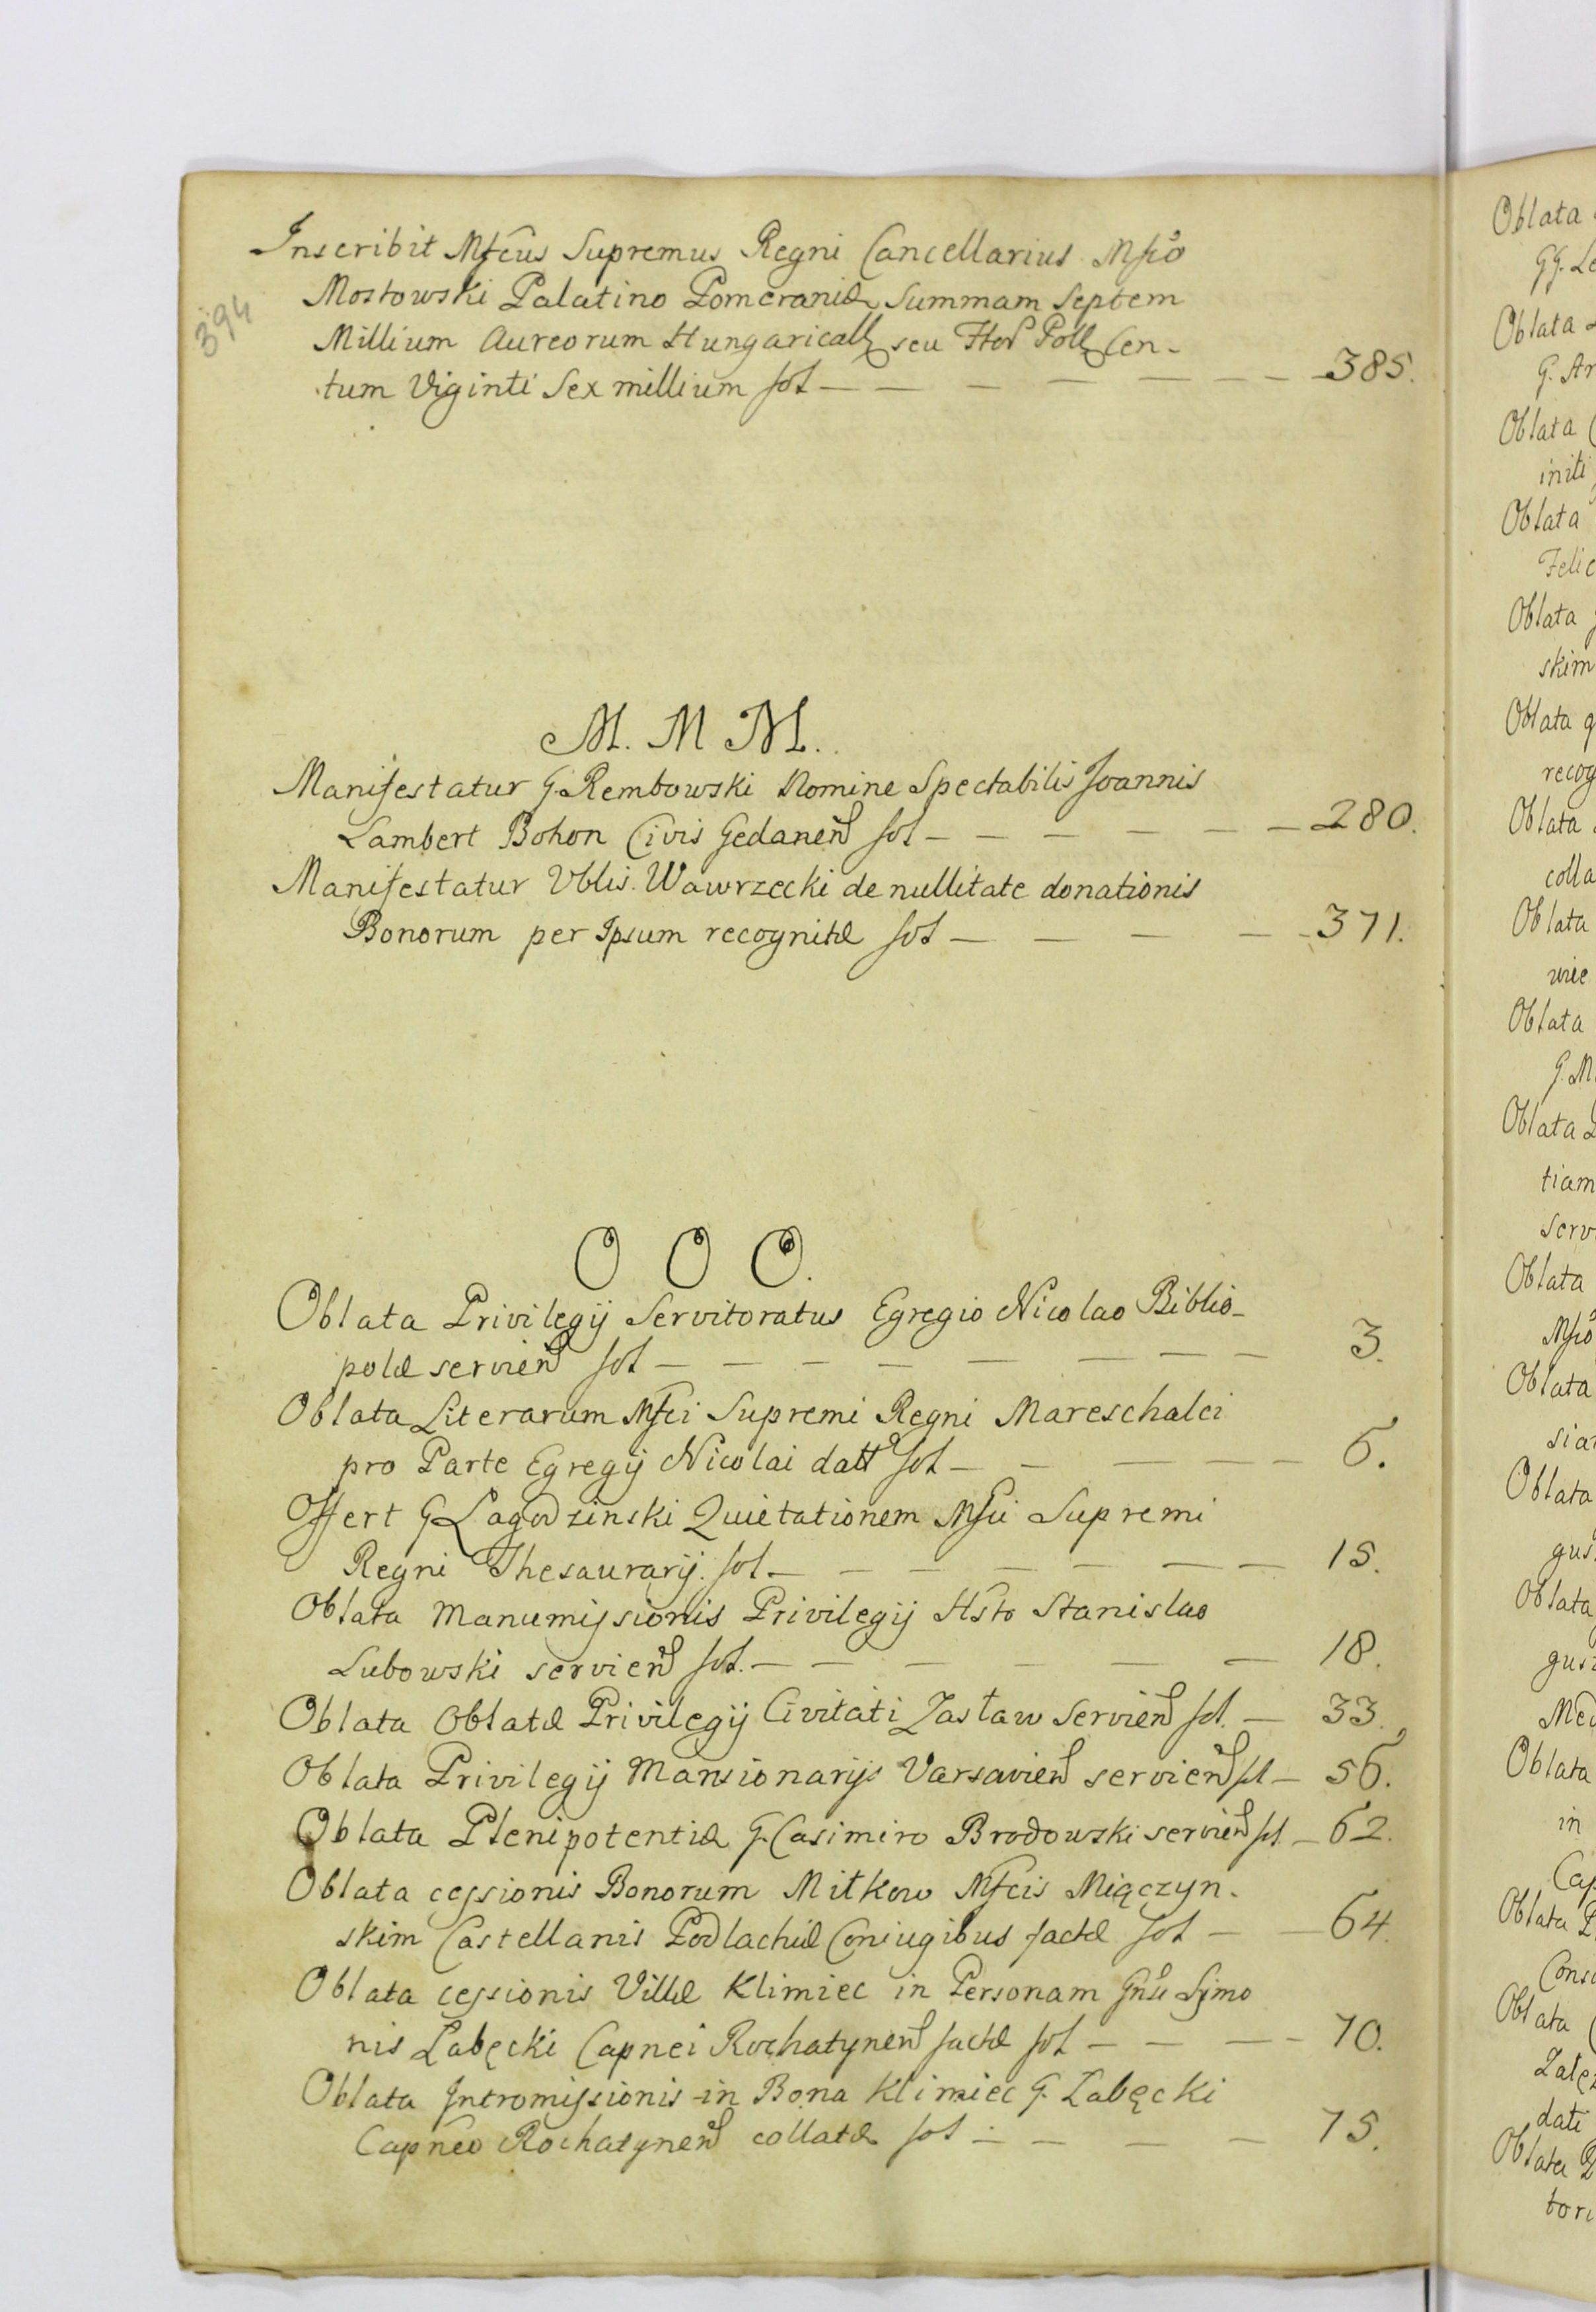 394
Inscribit Mfcus Supremus Regni Cancellarius Mfco
Mostowski Palatino Pomeraniæ Summam Septem
Millium Aureorum Hungaricall seu Flor Poll Cen-
tum Viginti Sex millium fol — — — — — — — 385.
M. M M.
Manifestatur G. Rembowski Nomine Spectabilis Joannis
Lambert Bohon Civis Gedanen fol — — — — — — 280.
Manifestatur Vblis. Wawrzecki de nullitate donationis
Bonorum per Ipsum recognitæ fol — — — — 371.
O O O.
Oblata Privilegij Servitoratus Egregio Nicolao Biblio-
polæ servien fol — — — — — — — — 3.
Oblata Literarum Mfci Supremi Regni Mareschalci
pro Parte Egregij Nicolai datt fol — — — — — 6.
Offert G Lagodzinski Quietationem Mfci Supremi
Regni Thesaurarij. fol — — — — — — — 15.
Oblata Manumissionis Privilegij Hsto Stanislao
Lubowski servien fol. — — — — — — 18.
Oblata Oblatæ Privilegij Civitati Zasław Servien fol. — 33.
Oblata Privilegij Mansionarijs Varsavien servien fol — 56.
Oblata Plenipotentiæ G. Casimiro Brodowski servien fol — 62.
Oblata cessionis Bonorum Mitkow Mfcis Miączyn-
skim Castellanis Podlachiæ Coniugibus factæ fol — — 64.
Oblata cessionis Villæ Klimiec in Personam Gnsi Simo
nis Łabęcki Capnei Rochatynen factæ fol — — — — 70.
Oblata Intromissionis in Bona Klimiec G. Łabęcki
Capneo Rochatynen collatæ fol — — — — 75.
Oblata
Oblata
Oblata
initi
Oblata
Felic
Oblata
skim
Oblata
recog
Oblata
colla
Oblata
wie
Oblata
Oblata
tiam
serv
Oblata
Oblata
Oblata
Oblata
Oblata
in
Oblata
Oblata
dati
Oblata